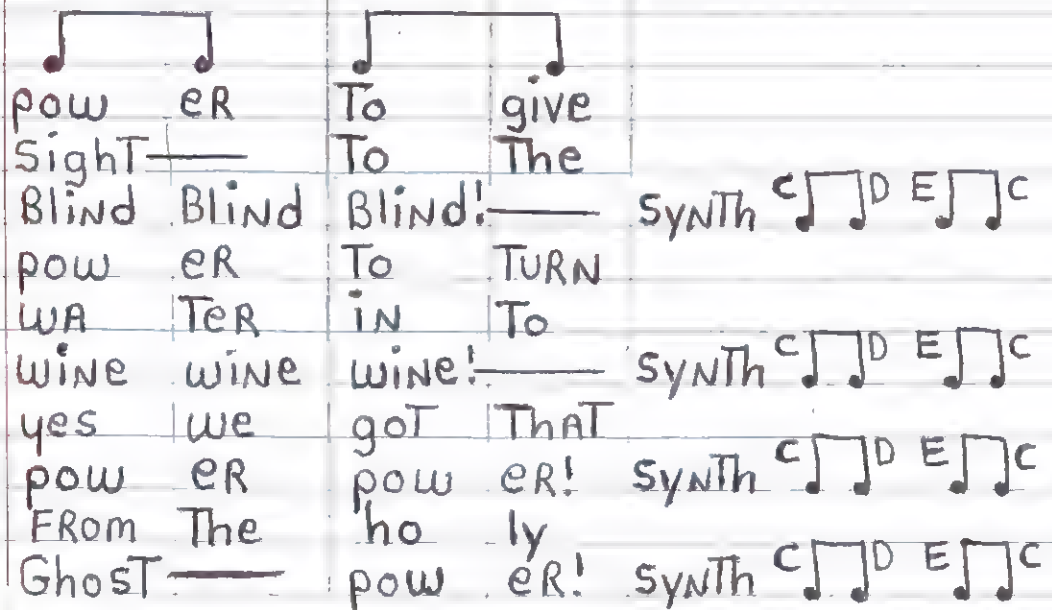 pow eR To give
SighT To The
BliNd BliNd BliNd! SyNTh C D E C
pow eR To TURN
WA TeR iN To
wiNe wiNe wiNe! SyNTh C D E C
yes we goT ThAT
pow eR pow eR! SyNTh C D E C
FRom The ho ly
GhosT pow eR! SyNTh C D E C